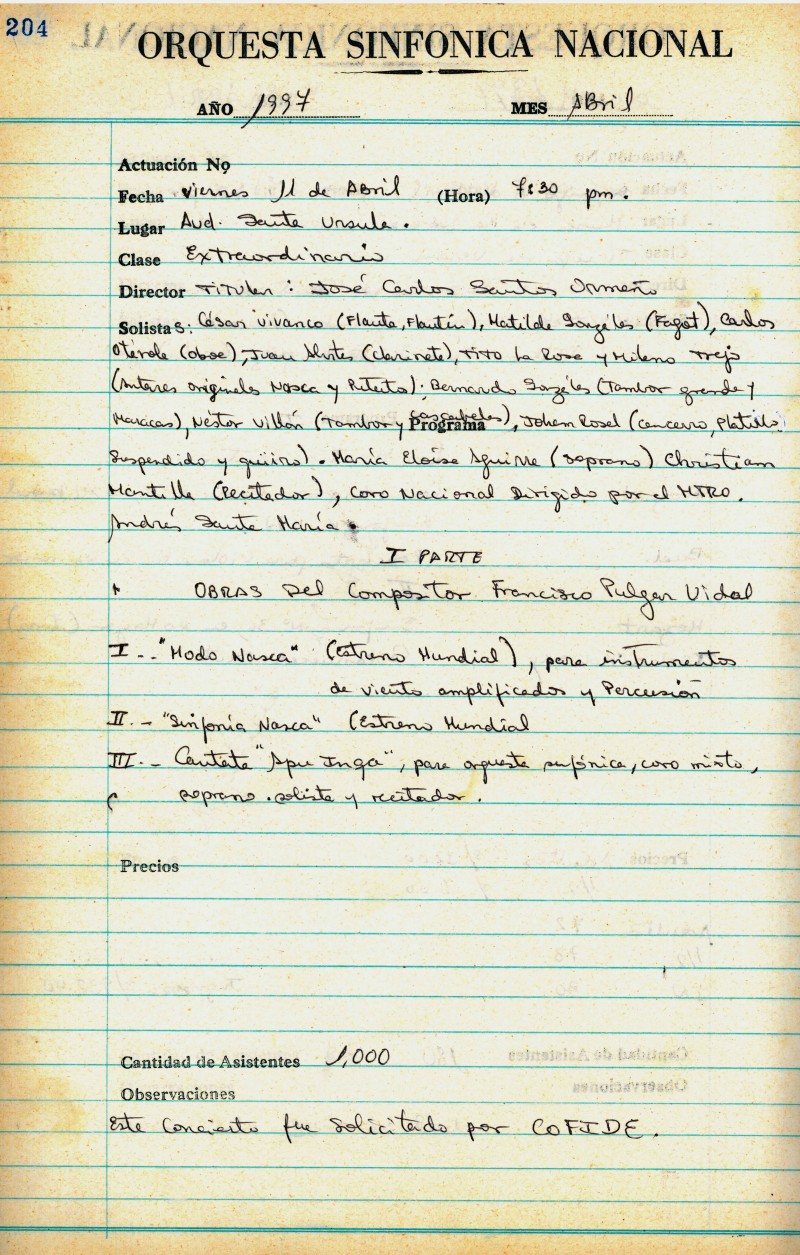 204
ORQUESTA SINFONICA NACIONAL
AÑO 1997 MES Abril
Actuación No
Fecha viernes 11 de Abril (Hora) 7:30 pm.
Lugar Aud. Santa Ursula.
Clase Extraordinario
Director Titular: José Carlos Santos Ormeño
Solistas: César Vivanco (Flauta, Flautín), Matilde Gonzáles (Fagot), Carlos
Otárola (oboe), Juan (clarinete), Tito La Rosa y Mileno Trejo
(Antaras originales Nasca y Rituito); Bernardo Gonzáles (Tambor grande y
Maracas), Néstor Villón (Tambor y cascabeles), Johem Rosel (cencerro, Platillo
Programa
Suspendido y güiro). María Eloísa Aguirre (soprano) Christiam
Mantilla (Recitador), Coro Nacional Dirigido por el MTRO.
Andrés Santa María.
I PARTE
OBRAS Del Compositor Francisco Pulgar Vidal
I.- "Modo Nasca" (Estreno Mundial), para instrumentos
de viento amplificados y Percusión
II.- "Sinfonía Nasca" (Estreno Mundial
III.- Cantata "Apu Inga", para orquesta sinfónica, coro mixto,
soprano solista y recitador.
Precios
Cantidad de Asistentes 1,000
Observaciones
Este Concierto fue Solicitado por COFIDE.